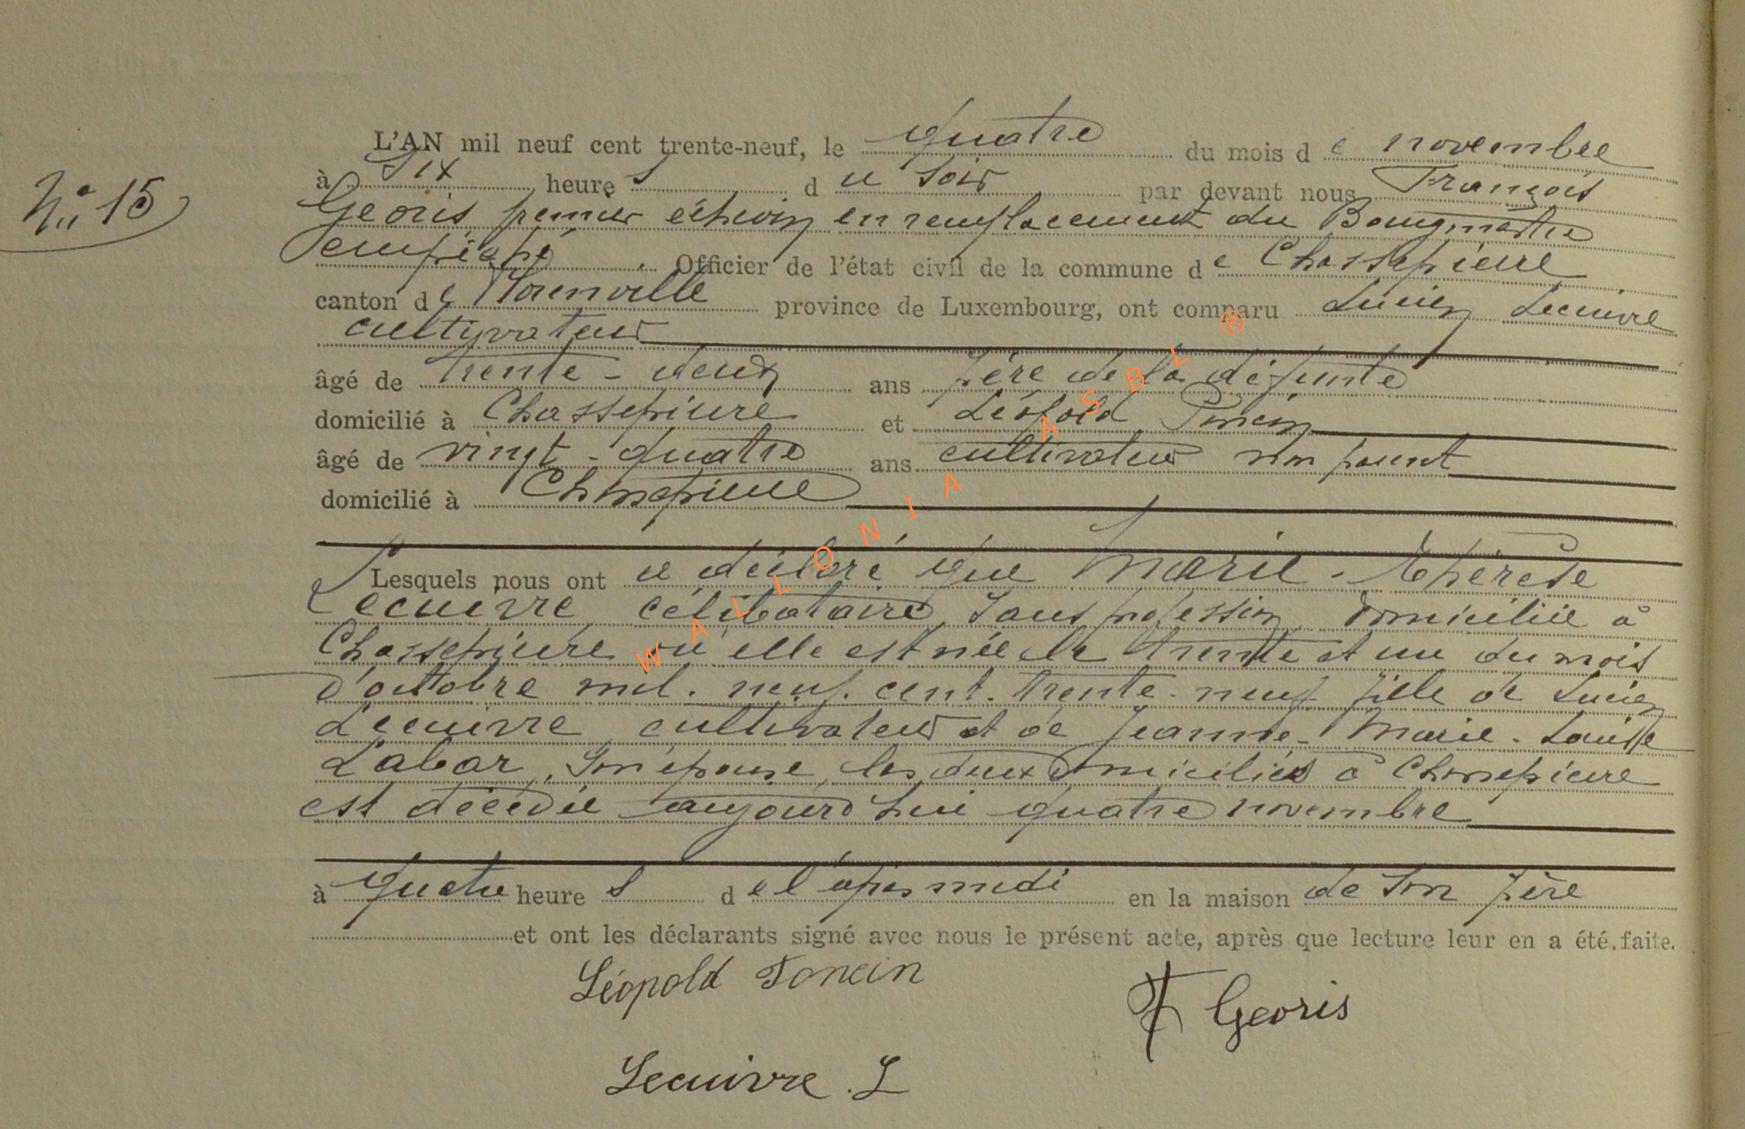 L'AN mil neuf cent trente-neuf, le quatre du mois de novembre
N° 15
à six heures du soir par devant nous François
Georis, premier échevin en remplacement du Bourgmestre
empêché, Officier de l'état civil de la commune de Chassepierre
canton de Florenville province de Luxembourg, ont comparu Lucien Lecuivre
cultivateur
âgé de trente-deux ans père de la défunte
domicilié à Chassepierre et Léopold Poncin
âgé de vingt-quatre ans cultivateur non parent
domicilié à Chassepierre
Lesquels nous ont déclaré que Marie-Thérèse
Lecuivre, célibataire, sans profession, domiciliée à
Chassepierre où elle est née le trente et un du mois
d'octobre mil-neuf-cent-trente-neuf fille de Lucien
Lecuivre, cultivateur et de Jeanne-Marie-Louise
Labar, son épouse, les deux domiciliés à Chassepierre
est décédée aujourd'hui quatre novembre
à quatre heures de l'après midi en la maison de son père
et ont les déclarants signé avec nous le présent acte, après que lecture leur en a été faite.
Léopold Poncin
F Georis
Lecuivre. L
WALLONIA ASBL ®